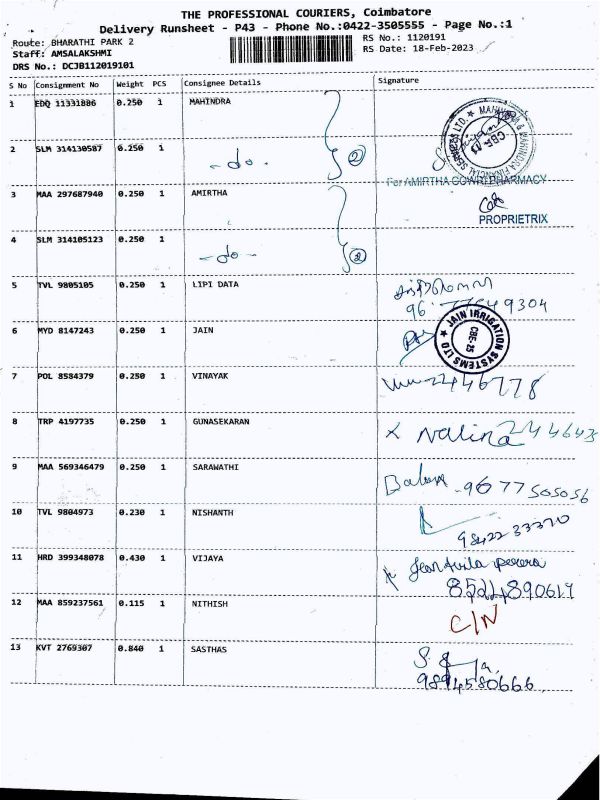 THE PROFESSIONAL COURIERS, Coimbatore
Delivery Runsheet - P43 - Phone No.:0422-3505555 - Page No.:1
Route: BHARATHI PARK 2
RS No.: 1120191
Staff: AMSALAKSHMI
RS Date: 18-Feb-2023
DRS No.: DCJB112019101
S No Consignment No Weight PCS Consignee Details Signature
1 EDQ 11331886 0.250 1 MAHINDRA
2 SLM 314130587 0.250 1 - do. - 2
For AMIRTHA GOWRI PHARMACY
3 MAA 297687940 0.250 1 AMIRTHA
PROPRIETRIX
4 SLM 314105123 0.250 1 - do - 2
5 TVL 9805105 0.250 1 LIPI DATA
6 MYD 8147243 0.250 1 JAIN
JAIN IRRIGATION SYSTEMS LTD ★
CBE-25
7 POL 8584379 0.250 1 VINAYAK 2446778
8 TRP 4197735 0.250 1 GUNASEKARAN x Nalina 244643
9 MAA 569346479 0.250 1 SARAWATHI - 9677505056
10 TVL 9804973 0.230 1 NISHANTH 9842233370
11 HRD 399348078 0.430 1 VIJAYA
8524890619
12 MAA 859237561 0.115 1 NITHISH C/N
13 KVT 2769307 0.840 1 SASTHAS
9894580666